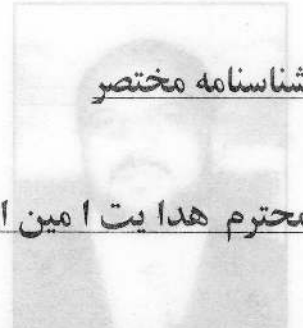 شناسنامه مختصر
محترم هدا یت ا مین ا